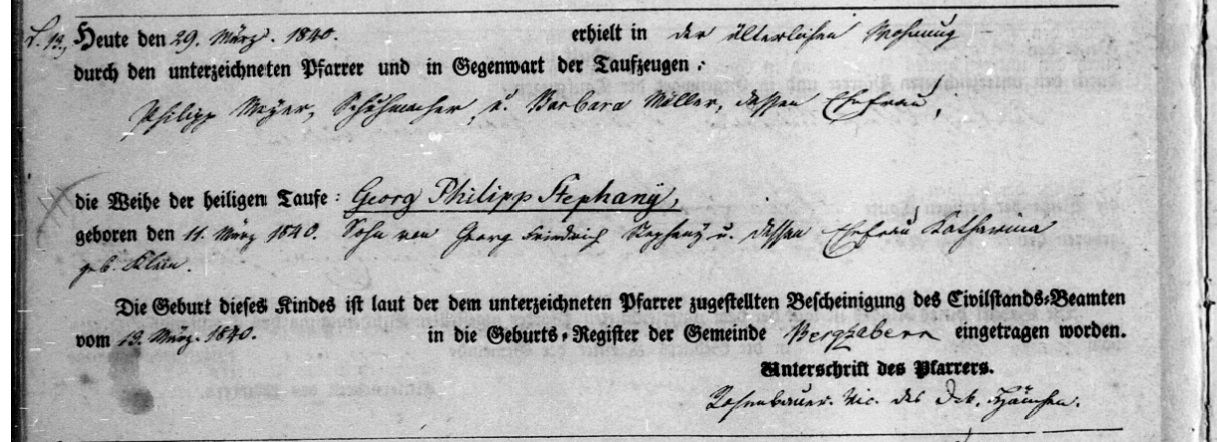 L. 13. Heute den 29. März. 1840. erhielt in der älterlichen Wohnung
durch den unterzeichneten Pfarrer und in Gegenwart der Taufzeugen:
Philipp Meyer, Schuhmacher u. Barbara Müller, dessen Ehefrau,
die Weihe der heiligen Taufe: Georg Philipp Stephanÿ,
geboren den 11. März 1840. Sohn von Georg Friedrich Stephanÿ u. dessen Ehefrau Katharina
geb. Klein.
Die Geburt dieses Kindes ist laut der dem unterzeichneten Pfarrer zugestellten Bescheinigung des Civilstands-Beamten
vom 13. März. 1840. in die Geburts-Register der Gemeinde Bergzabern eingetragen worden.
Unterschrift des Pfarrers.
Rosenbauer. Vic. des